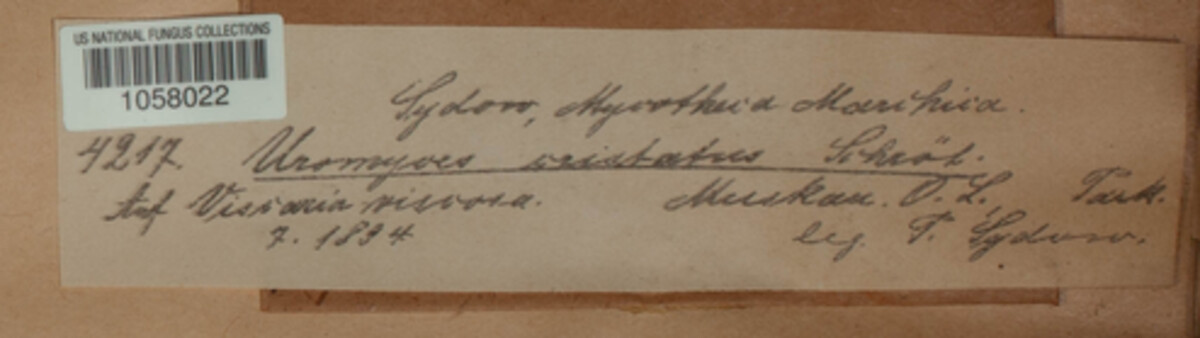 US NATIONAL FUNGUS COLLECTIONS
1058022
Sydow, Mycotheca Marchica.
4217. Uromyces cristatus Schröt.
Auf Viscaria viscosa. Muskau. O. L., Park.
7. 1894 leg. P. Sydow.